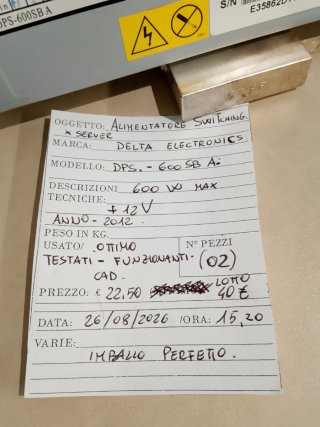 DPS-600SB A
S/N
E35862D1
OGGETTO: ALIMENTATORE SWITCHING
x SERVER
MARCA: DELTA ELECTRONICS
MODELLO: DPS.-600SB A.
DESCRIZIONI 600 W MAX
TECNICHE: +12V
ANNO-2012.
PESO IN KG.
USATO/ OTTIMO
N° PEZZI
TESTATI - FUNZIONANTI. (02)
CAD.
PREZZO: € 22,50 LOTTO
40 €
DATA: 26/08/2026 /ORA: 15,20
VARIE:
IMBALLO PERFETTO.